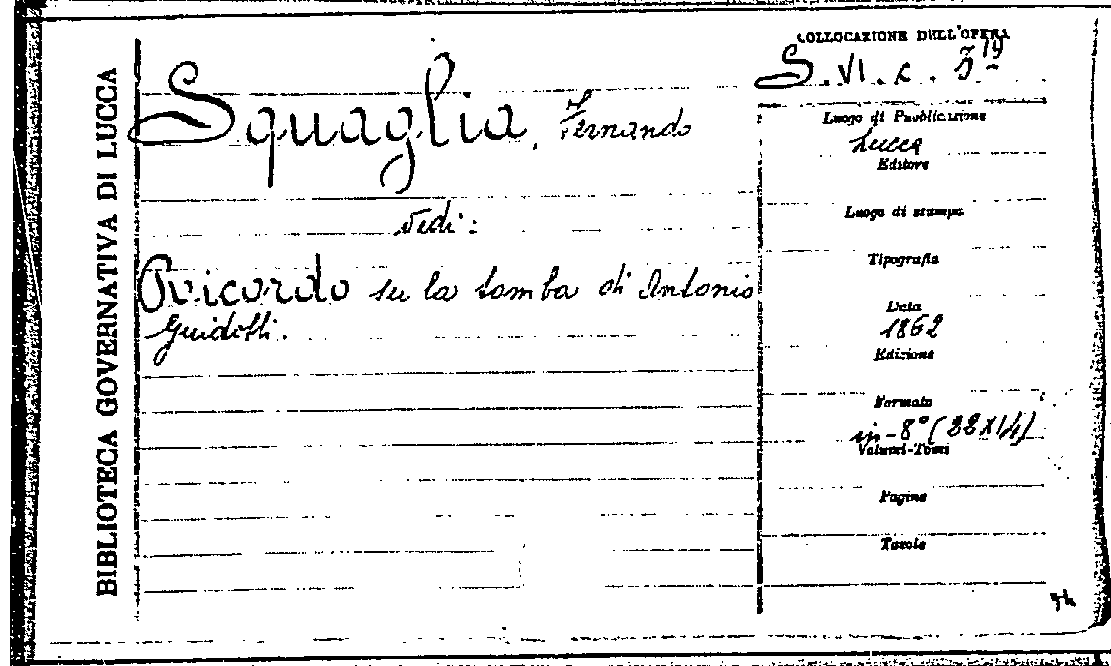 BIBLIOTECA GOVERNATIVA DI LUCCA
Squaglia, Fernando
Vedi:
Ricordo su la tomba di Antonio
Guidotti.
COLLOCAZIONE DELL'OPERA
S. VI. c. 3 19
Luogo di Pubblicazione
Lucca
Editore
Luogo di stampa
Tipografia
Data
1862
Edizione
Formato
in-8° (22x14)
Volumi-Tomi
Pagine
Tavole